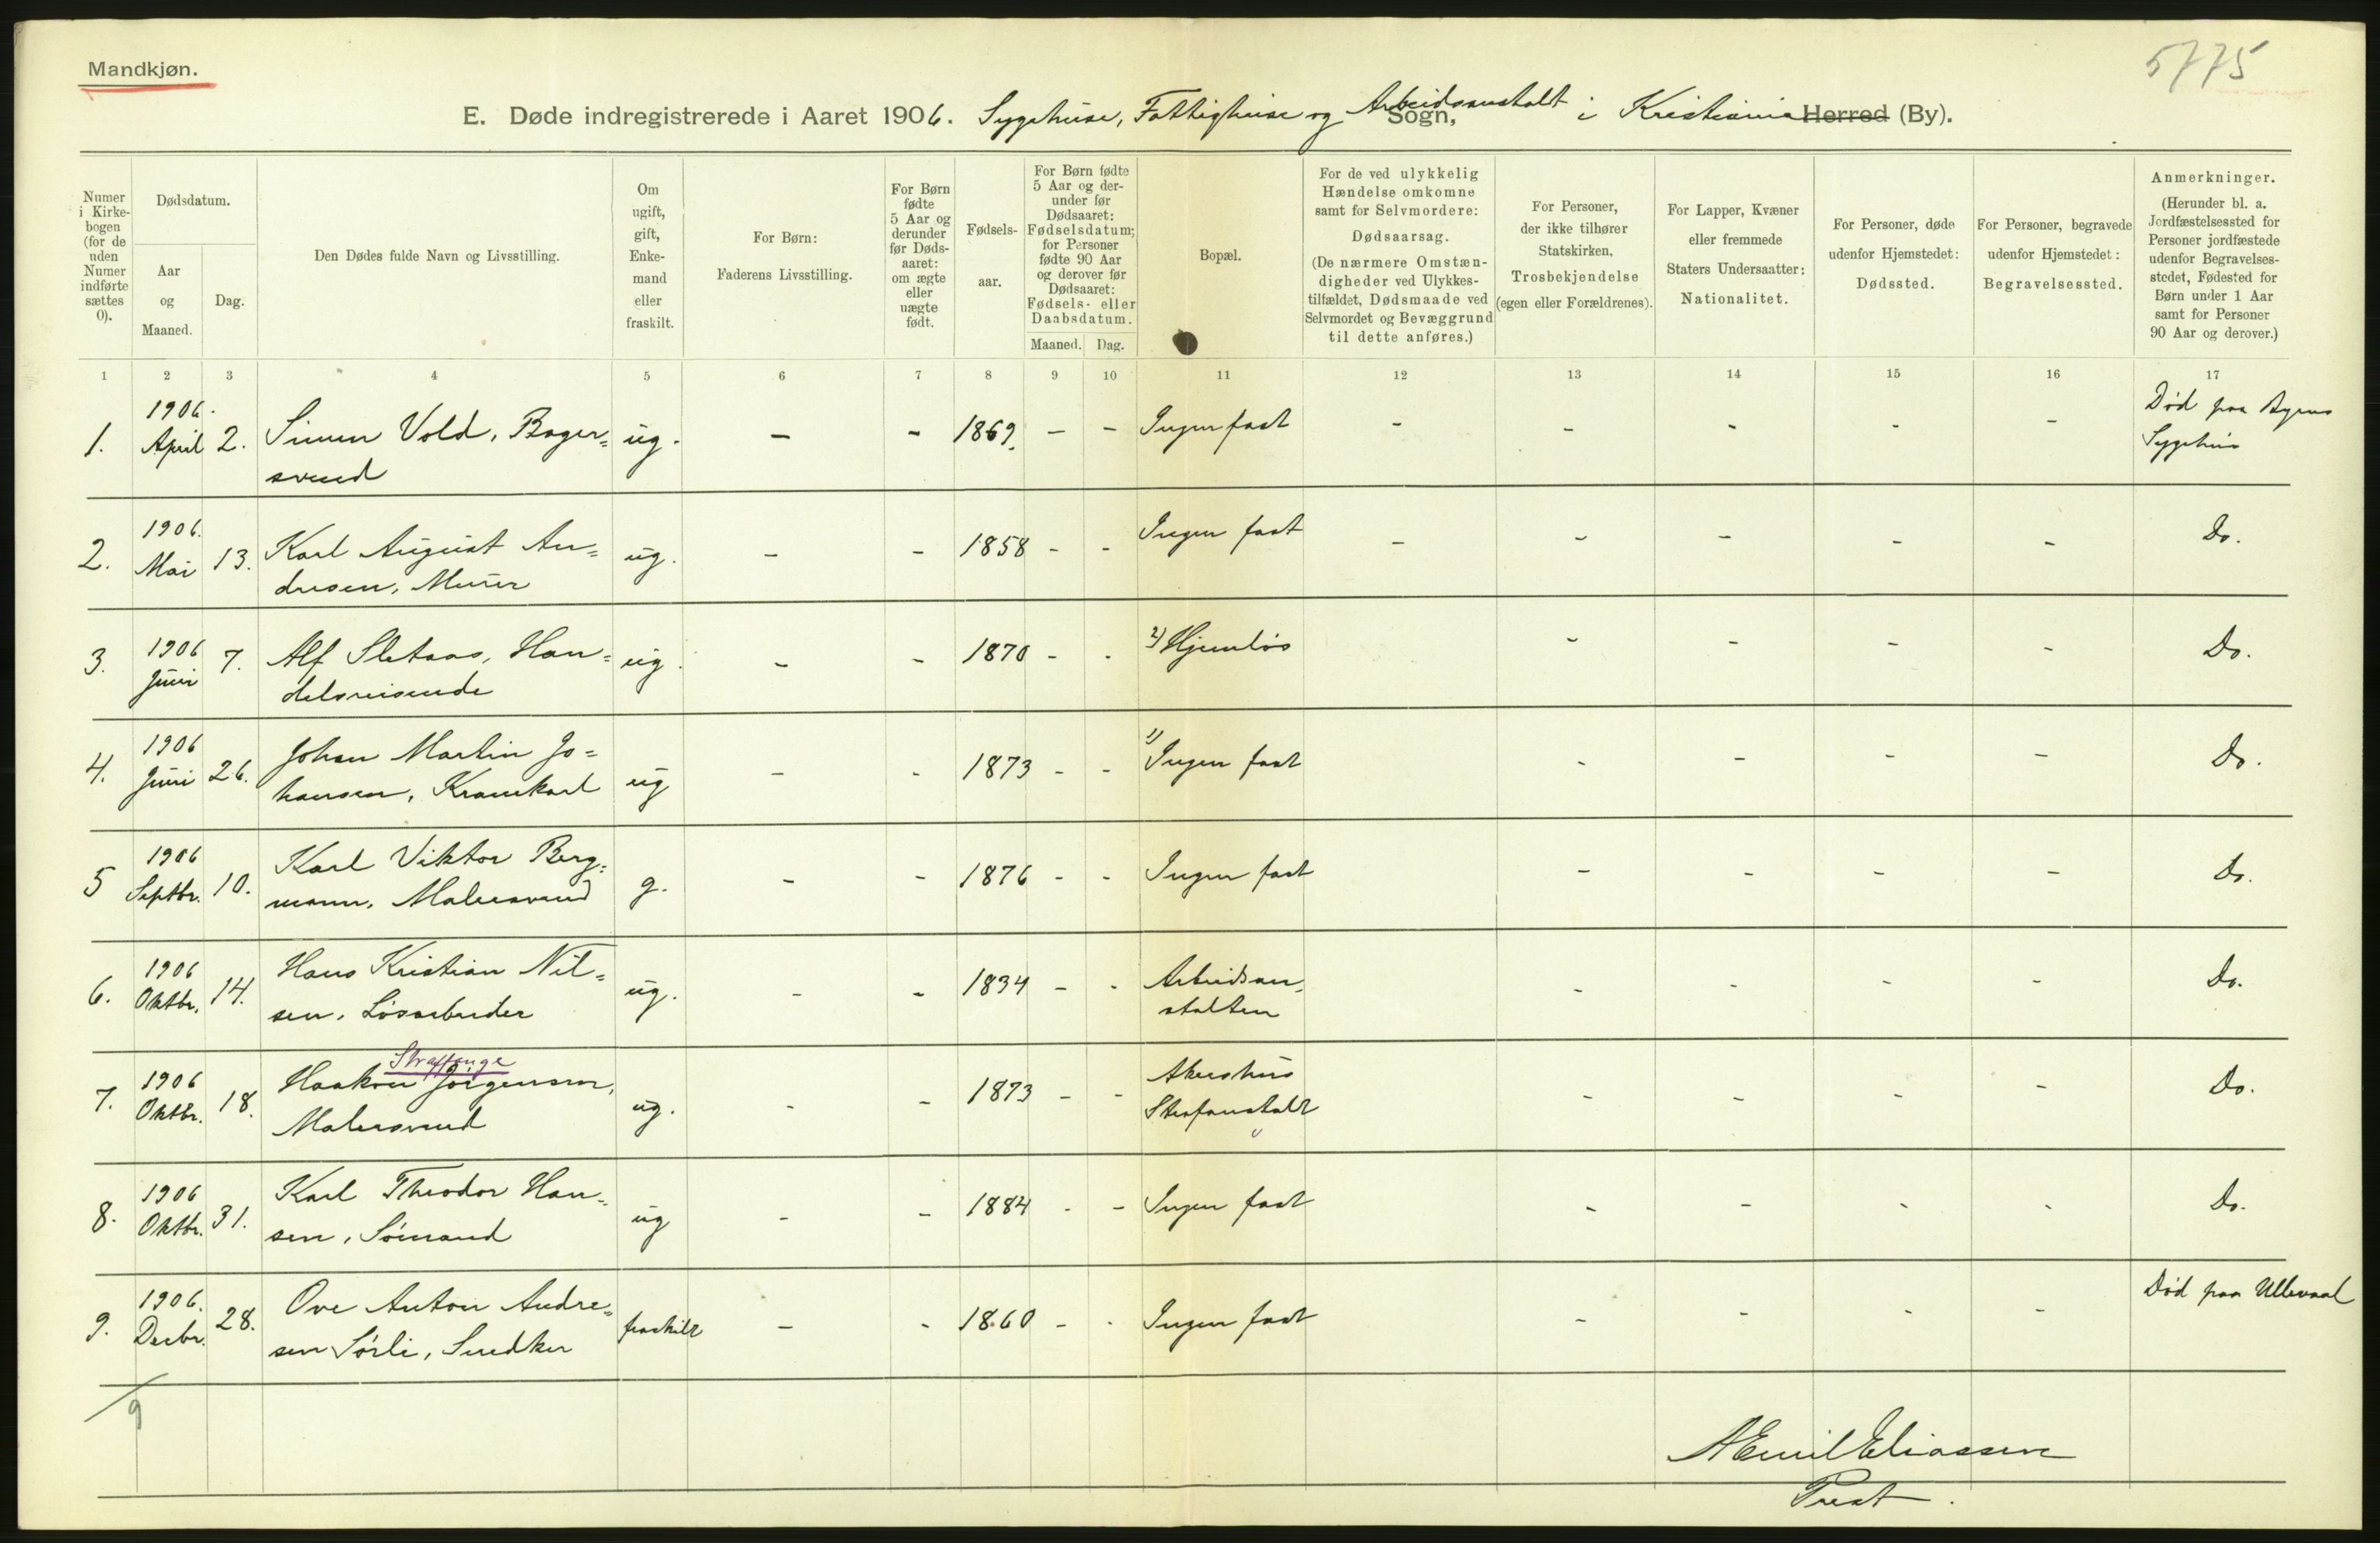 Mandkjøn.
5775
E. Døde indregistrerede i Aaret 1906. Sygehuse, Fattighuse og Arbeidsanstalt i Kristiania Sogn, Herred (By).
Numer i Kirkebogen (for de uden Numer indførte sættes 0).
Dødsdatum.
Aar og Maaned.
Dag.
Den Dødes fulde Navn og Livsstilling.
Om ugift, gift, Enkemand eller fraskilt.
For Børn: Faderens Livsstilling.
For Børn fødte 5 Aar og derunder før Dødsaaret: om ægte eller uægte født.
Fødselsaar.
For Børn fødte 5 Aar og derunder før Dødsaaret: Fødselsdatum; for Personer fødte 90 Aar og derover før Dødsaaret: Fødsels- eller Daabsdatum.
Maaned. Dag.
Bopæl.
For de ved ulykkelig Hændelse omkomne samt for Selvmordere: Dødsaarsag. (De nærmere Omstændigheder ved Ulykkestilfældet, Dødsmaade ved Selvmordet og Bevæggrund til dette anføres.)
For Personer, der ikke tilhører Statskirken, Trosbekjendelse (egen eller Forældrenes).
For Lapper, Kvæner eller fremmede Staters Undersaatter: Nationalitet.
For Personer, døde udenfor Hjemstedet: Dødssted.
For Personer, begravede udenfor Hjemstedet: Begravelsessted.
Anmerkninger. (Herunder bl. a. Jordfæstelsessted for Personer jordfæstede udenfor Begravelsesstedet, Fødested for Børn under 1 Aar samt for Personer 90 Aar og derover.)
1 2 3 4 5 6 7 8 9 10 11 12 13 14 15 16 17
1. 1906. April 2. Simen Vold, Bager= ug. - - 1869. - - Ingen fast - - - - - Død paa Byens
svend Sygehus
2. 1906. Mai 13. Karl August An= ug. - - 1858 - - Ingen fast - - - - - Do.
dresen, Murer
3. 1906 Juni 7. Alf Sletaas, Han= ug. - - 1870 - - 2) Hjemløs - - - - Do.
delsreisende
4. 1906 Juni 26. Johan Martin Jo= ug - - 1873 - - 1) Ingen fast - - - - Do.
hansen, Kranekarl
5 1906 Septbr. 10. Karl Viktor Berg= g. - - 1876 - - Ingen fast - - - - Do.
mann, Malersvend
6. 1906 Oktbr. 14. Hans Kristian Nil= ug. - - 1834 - - Arbeidsan= - - - - Do.
sen, Løsarbeider stalten
Straffange
7. 1906 Oktbr. 18. Haakon Jörgensen, ug. - - 1873 - - Akershus - - - - Do.
Malersvend Strafanstalt
8. 1906 Oktbr. 31. Karl Theodor Han= ug - - 1884 - - Ingen fast - - - - Do.
sen, Sømand
9. 1906. Decbr. 28. Ove Anton Andre= fraskilt - - 1860 - - Ingen fast - - - - Død paa Ullevaal
sen Sørli, Snedker
9
A Emil Eliassen
Prest.